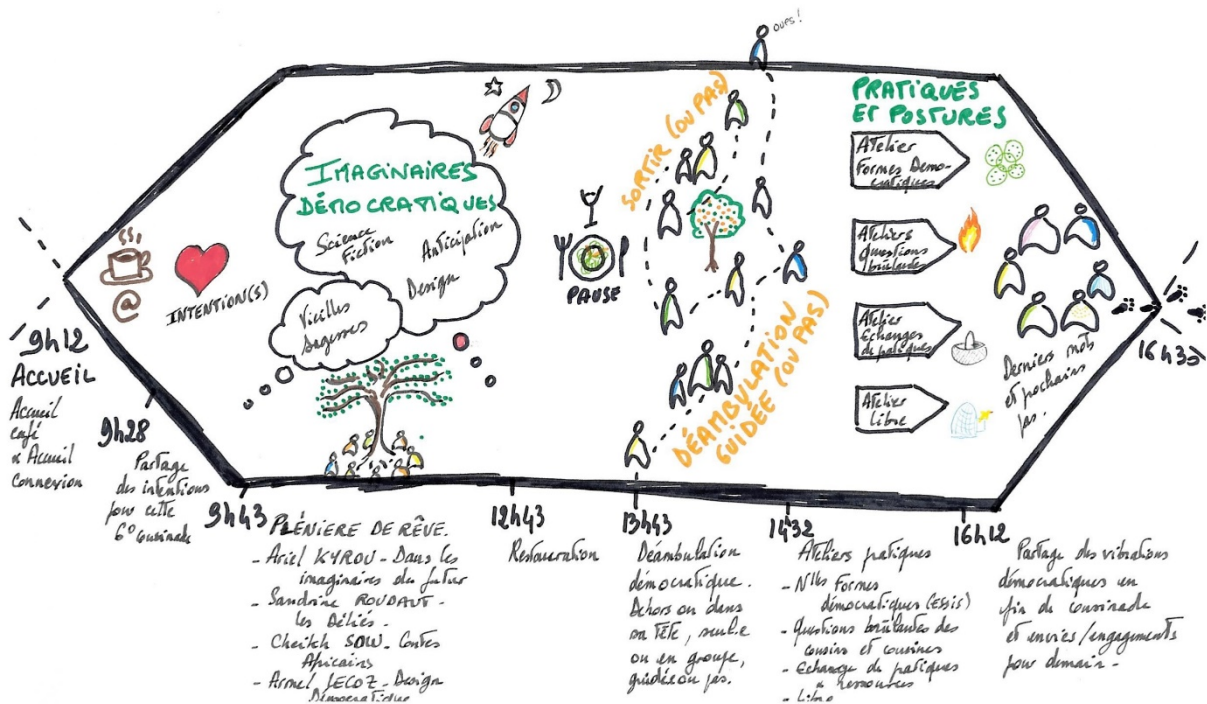 oups!
PRATIQUES
ET POSTURES
IMAGINAIRES
DÉMOCRATIQUES
Science
Fiction
Anticipation
Design
Vieilles
sagesses
INTENTION(S)
@
PAUSE
SORTIR (OU PAS)
DÉAMBULATION
GUIDÉE (OU PAS)
Atelier
Formes Démo-
cratiques
Ateliers
questions
brûlantes
Atelier
Echanges
de pratiques
Atelier
Libre
Derniers mots
et prochains
pas.
9h12
ACCUEIL
Accueil
café
Accueil
connexion
9h28
Partage
des intentions
pour cette
6° cousinade
9h43
PLÉNIERE DE RÊVE.
- Ariel KYROU - Dans les
imaginaires du futur
- Sandrine ROUDAUT -
les Déliés.
- Cheikh SOW. Contes
Africains
- Armel LECOZ - Design
Démocratique
12h43
Restauration
13h43
Déambulation
démocratique.
Dehors ou dans
sa TÊTE, seul.e
ou en groupe,
guidée ou pas.
14h32
Ateliers pratiques
- Nlles Formes
démocratiques (ESSIS)
- Questions brûlantes des
cousins et cousines
- Echange de pratiques
ressources
- Libre
16h12
Partage des vibrations
démocratiques en
fin de cousinade
et envies/engagements
pour demain -
16h33